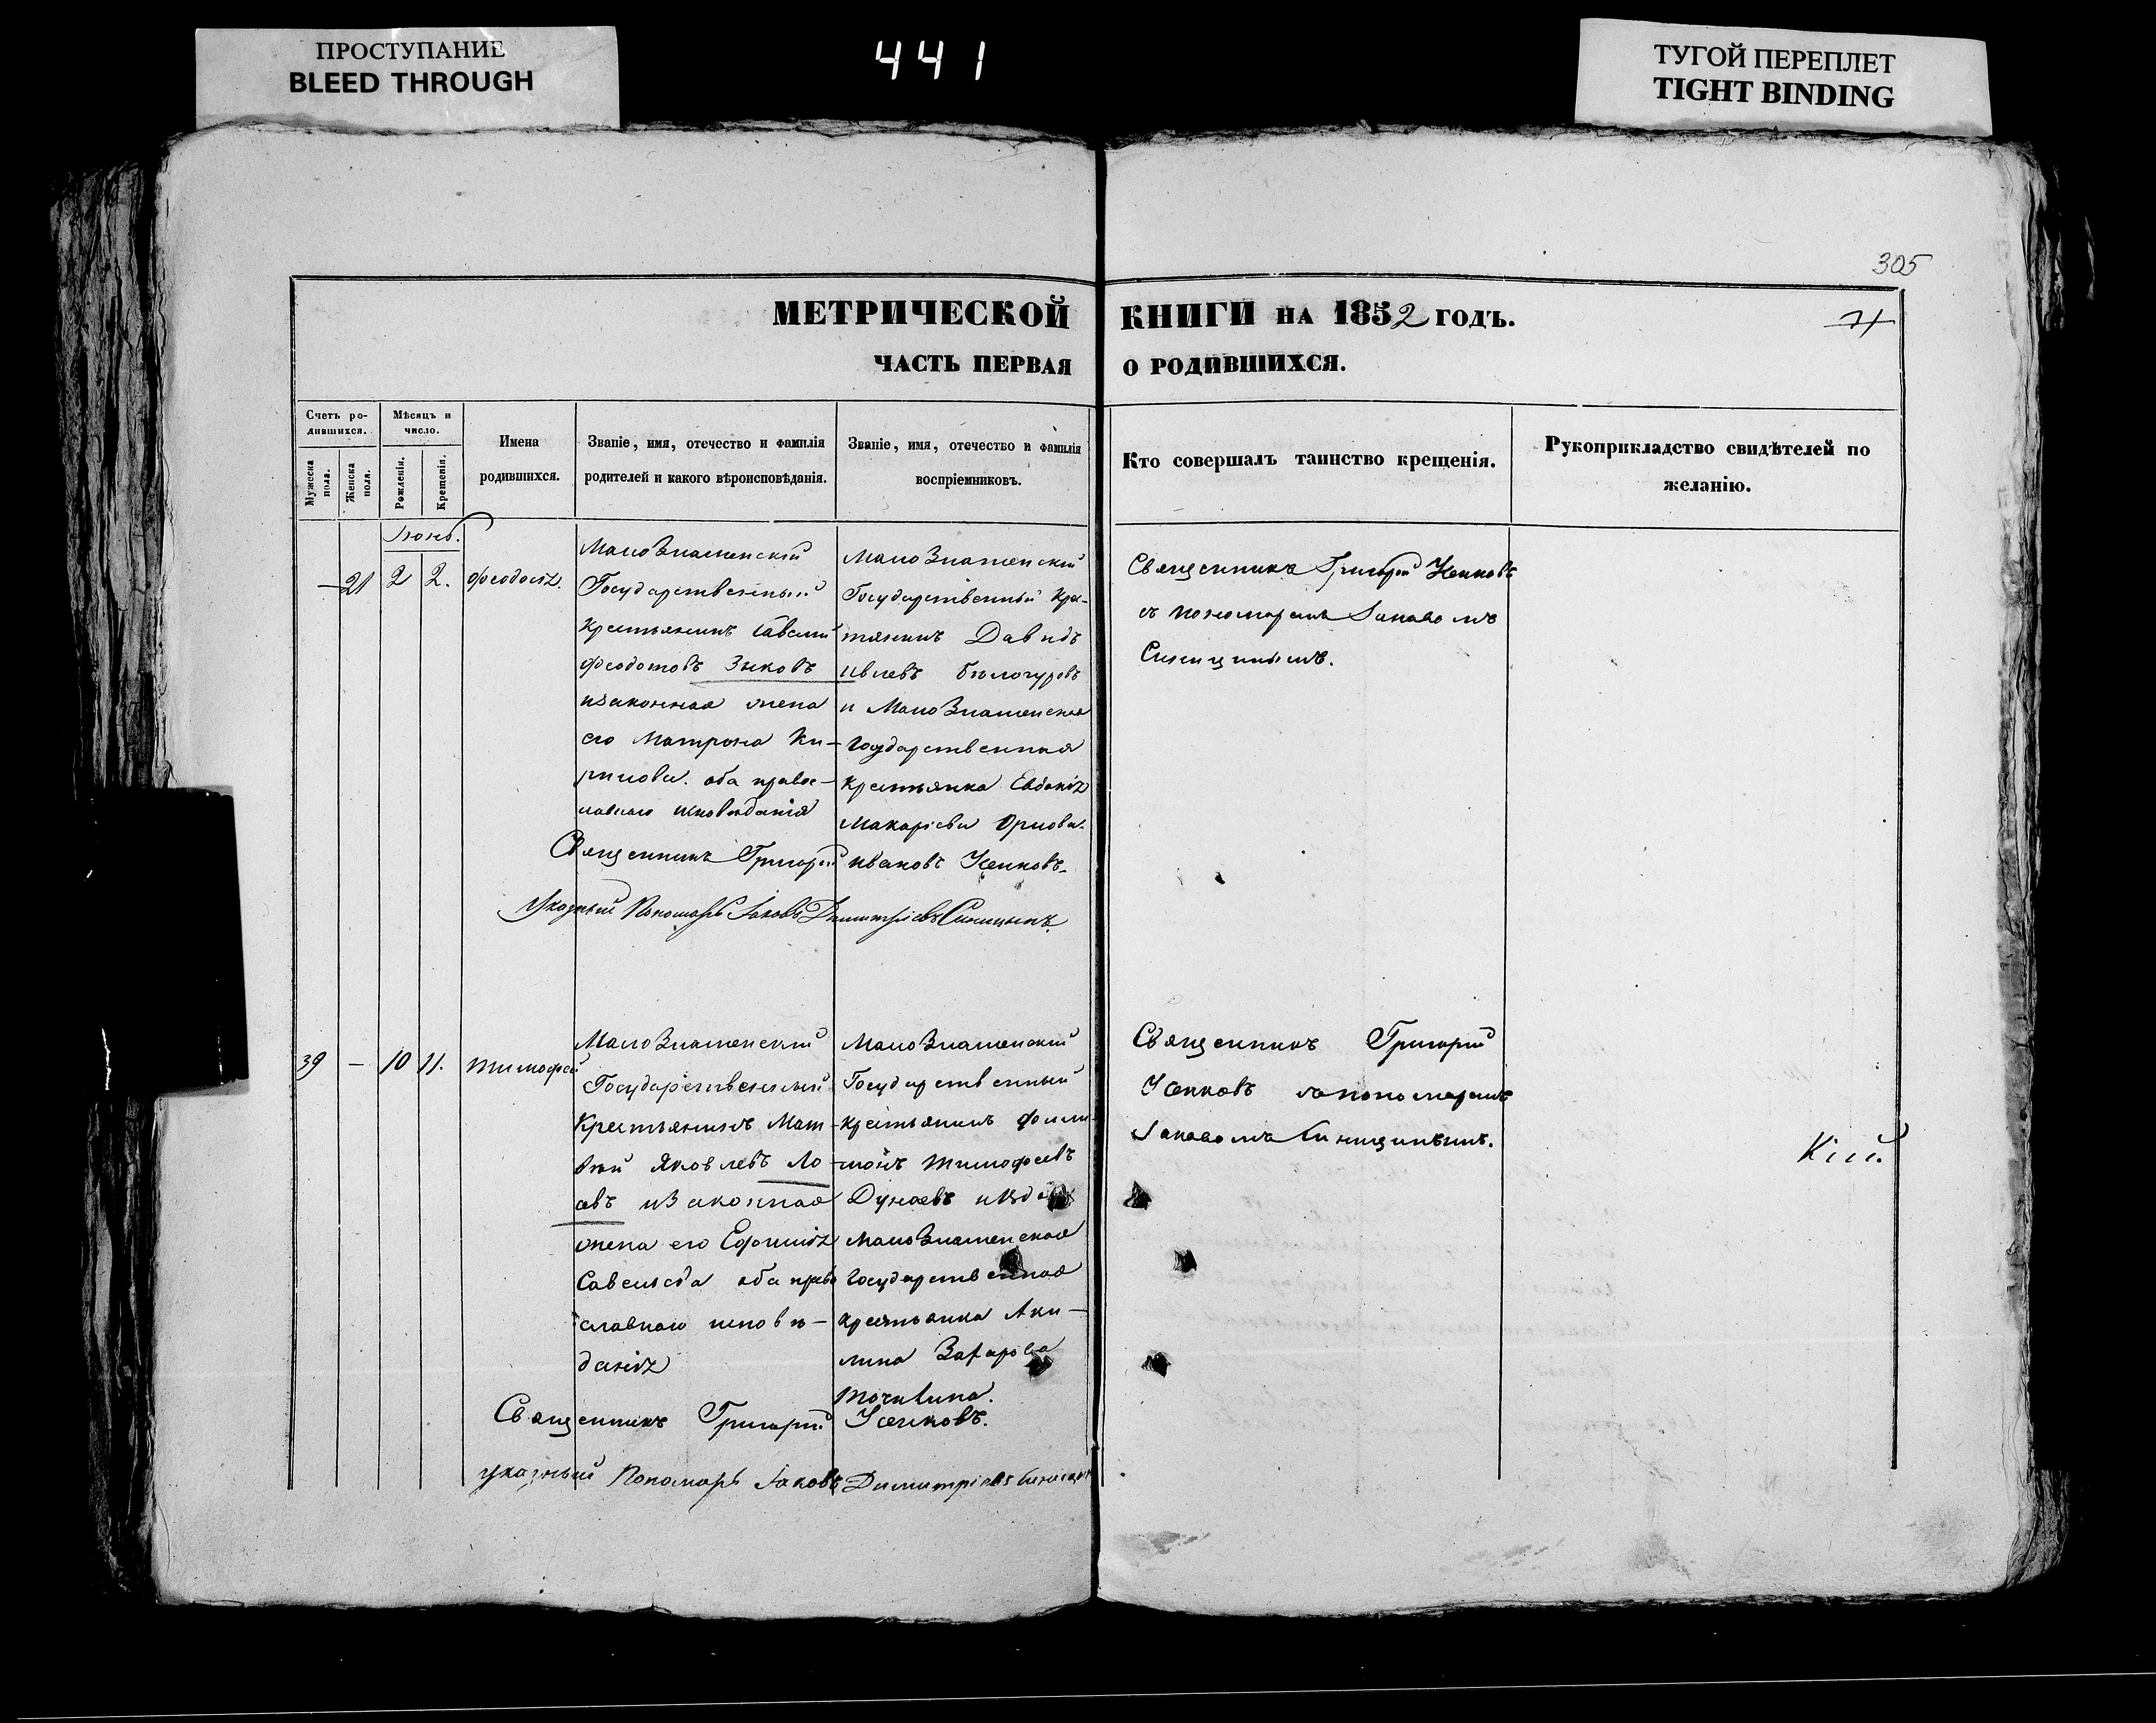 ПРОСТУПАНИЕ
BLEED THROUGH
441
ТУГОЙ ПЕРЕПЛЕТ
TIGHT BINDING
305
МЕТРИЧЕСКОЙ КНИГИ НА 1852 ГОДЪ.
ЧАСТЬ ПЕРВАЯ О РОДИВШИХСЯ.
Счетъ ро-
дившихся.
Мужеска
пола.
Женска
пола.
Мѣсяцъ и
число.
Рожденія.
Крещенія.
Имена
родившихся.
Званіе, имя, отечество и фамилія
родителей и какого вѣроисповѣданія.
Званіе, имя, отечество и фамилія
воспріемниковъ.
Кто совершалъ таинство крещенія.
Рукоприкладство свидѣтелей по
желанію.
Іюнь.
—
21
2
2.
Феодосія.
МалоЗнаменскій
Государственный
крестьянинъ Савелій
Феодотовъ Зыковъ
изаконная жена
его Матрона Ки-
рилова. оба право-
славнаго исповѣданія
МалоЗнаменскій
Государственный кре-
тянинъ Давидъ
Ивлевъ Бѣлогуровъ
и МалоЗнаменская
государственная
крестьянка Евдокія
Макаріева Орлова.
Священникъ Григорій Ивановъ Усенковъ.
Указный Пономарь Іаковъ Димитріевъ Синицынъ.
Священникъ Григорій Усенковъ
съ пономаремъ Іаковомъ
Синицинымъ.
39
—
10
11.
Тимофей
МалоЗнаменскій
Государственный
Крестьянинъ Мат-
вѣй Яковлевъ Ло-
евъ изаконная
жена его Ефимія
Савельева оба право
славнаго исповѣ-
данія
МалоЗнаменскій
Государственный
крестьянинъ Фили-
монъ Тимофеевъ
Дунаевъ
малоЗнаменская
государственная
крестьянка Аки-
лина Захарова
Точилина.
Священникъ Григорій Усенковъ.
указный Пономарь Іаковъ Димитріевъ Синицынъ
Священникъ Григорій
Усенковъ спономаремъ
Іаковомъ Синицинымъ.